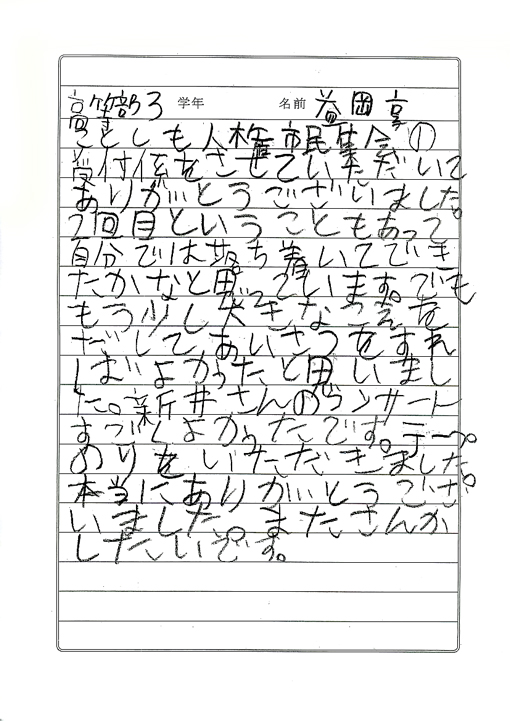 高等部3 学年 名前 益岡 享
ことしも人権市民集会の
受付係をさせていただいて
ありがとうございました。
2回目ということもあって
自分では落ち着いてでき
たかなと思っています。でも
もう少し大きなこえを
だしてあいさつをすれ
ばよかったと思いまし
た。新井さんのコンサート
すごくよかったです。テープ
のりをいただきました。
本当にありがとうござ
いました。またさんか
したいです。